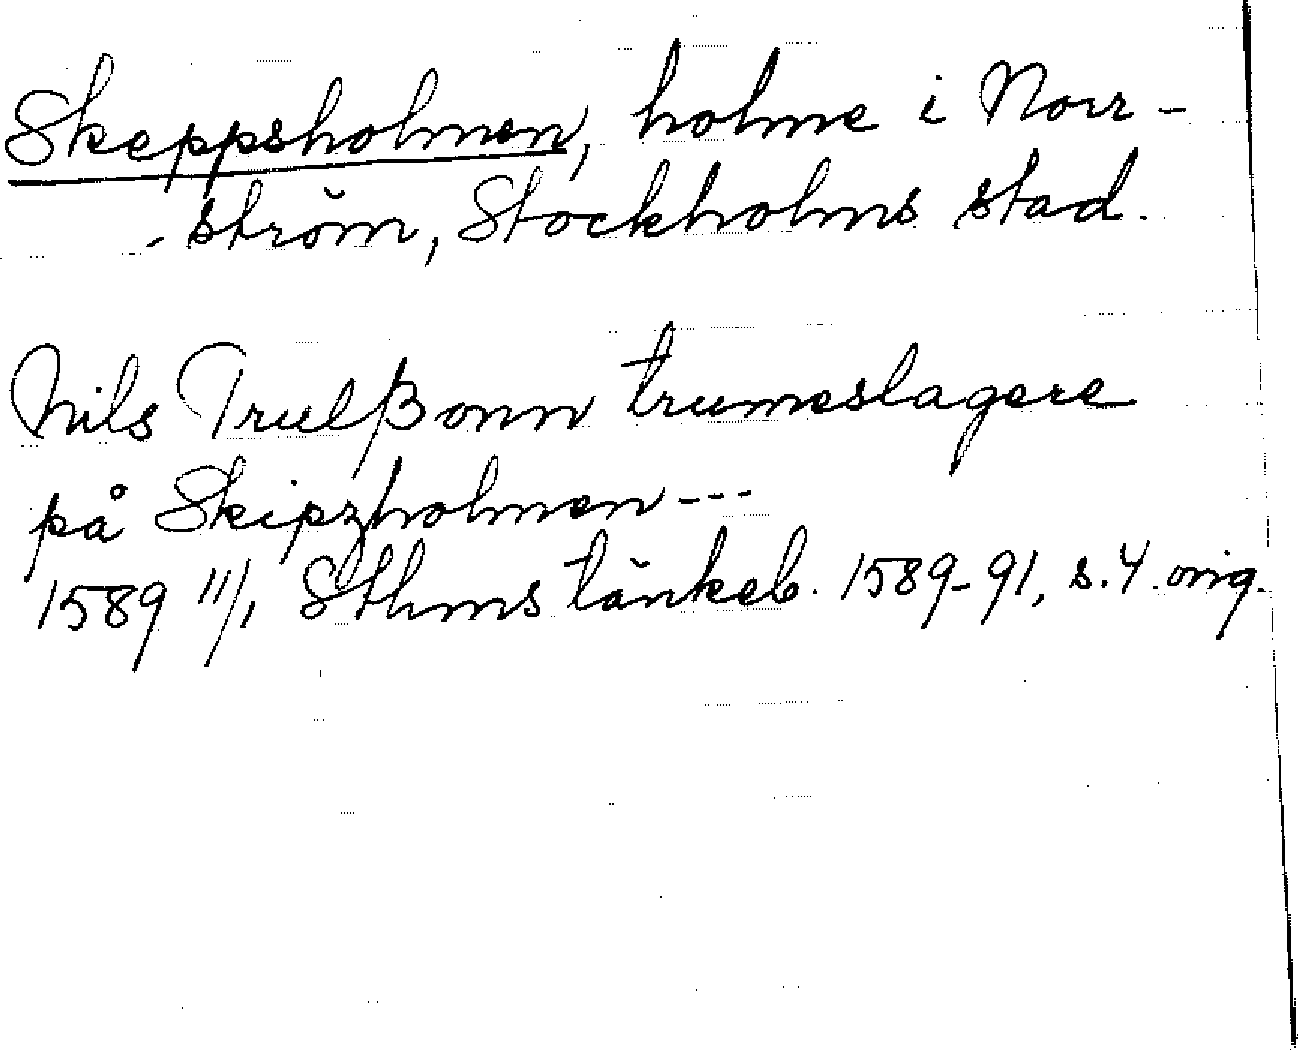 Skeppsholmen, holme i Norr-
-ström, Stockholms stad.
Nils Trulßonn trumeslagere
på Skipzholmen ---
1589 11/1 Sthms tänkeb. 1589-91, s.4. orig.